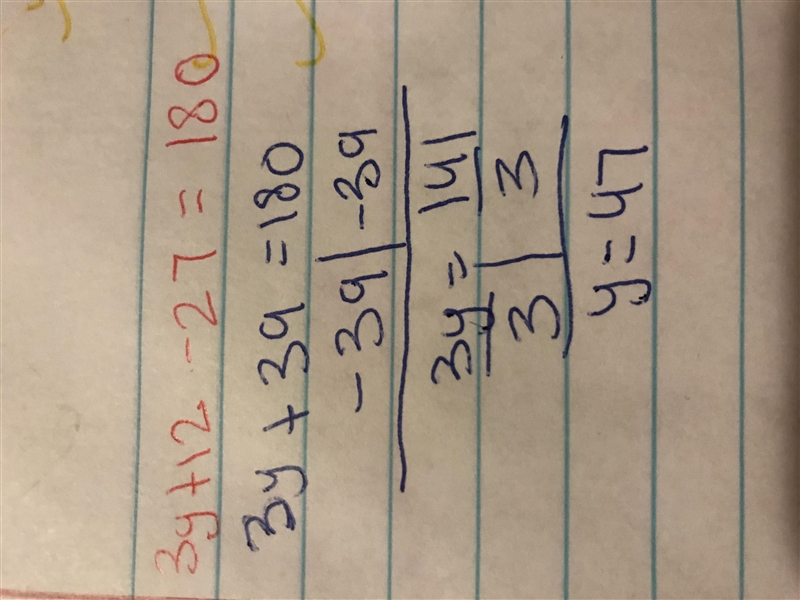 3y+12-27 = 180
3y + 39 = 180
-39 | -39
3y = 141
3 | 3
y = 47